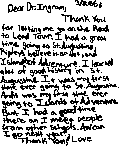 Dear Dr. Ingram,
Thank You
for letting me go on the Road
to Lead Town. I had a great
time going to St. Augustine
Ripley's believe it or not, and
Island of Adventure. I learned
alot of good history in St.
Augustine. It was my first
time ever going to St. Augustine
And it was my first time ever
going to Islands of Adventure
But I had a good time
there on a major people
from other schools. And can
I go next year?
Thank You, Love